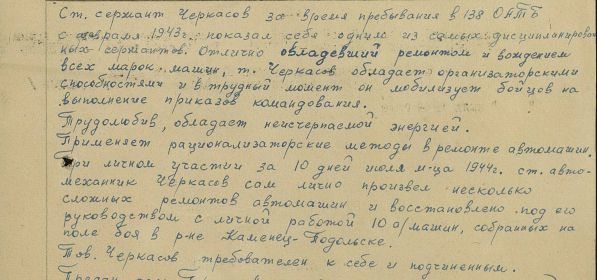 Ст. сержант Черкасов за время пребывания в 138 ОАТБ
с февраля 1943г. показал себя одним из самых дисциплинирован-
ных сержантов. Отлично овладевший ремонтом и вождением
всех марок машин, т. Черкасов обладает организаторскими
способностями и в трудный момент он мобилизует бойцов на
выполнение приказов командования.
Трудолюбив, обладает неисчерпаемой энергией.
Применяет рационализаторские методы в ремонте автомашин.
При личном участии за 10 дней июля м-ца 1944г. ст. авто-
механик Черкасов сам лично произвел несколько
сложных ремонтов автомашин и восстановлено под его
руководством с личной работой 10 а/машин, собранных на
поле боя в р-не Каменец-Подольске.
Тов. Черкасов требователен к себе и подчиненным.